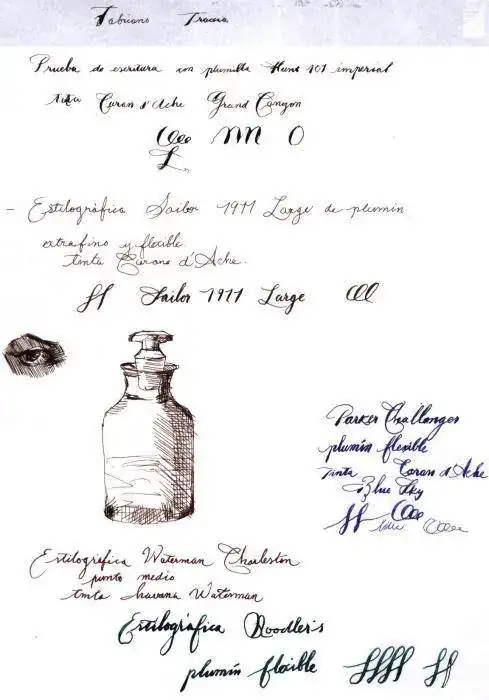 Fabriano Traccia
Prueba de escritura con plumilla Hunt 101 imperial
tinta Caran d'Ache Grand Canyon
- Estilográfica Sailor 1911 Large de plumín
extrafino y flexible.
tinta Carane d'Ache.
ff Sailor 1911 Large
Parker Challanger
plumín flexible
tinta Caran d'Ache
Blue Sky
Estilográfica Waterman Charleston
punto medio
tinta havana Waterman
Estilográfica Noodler's
plumín flexible